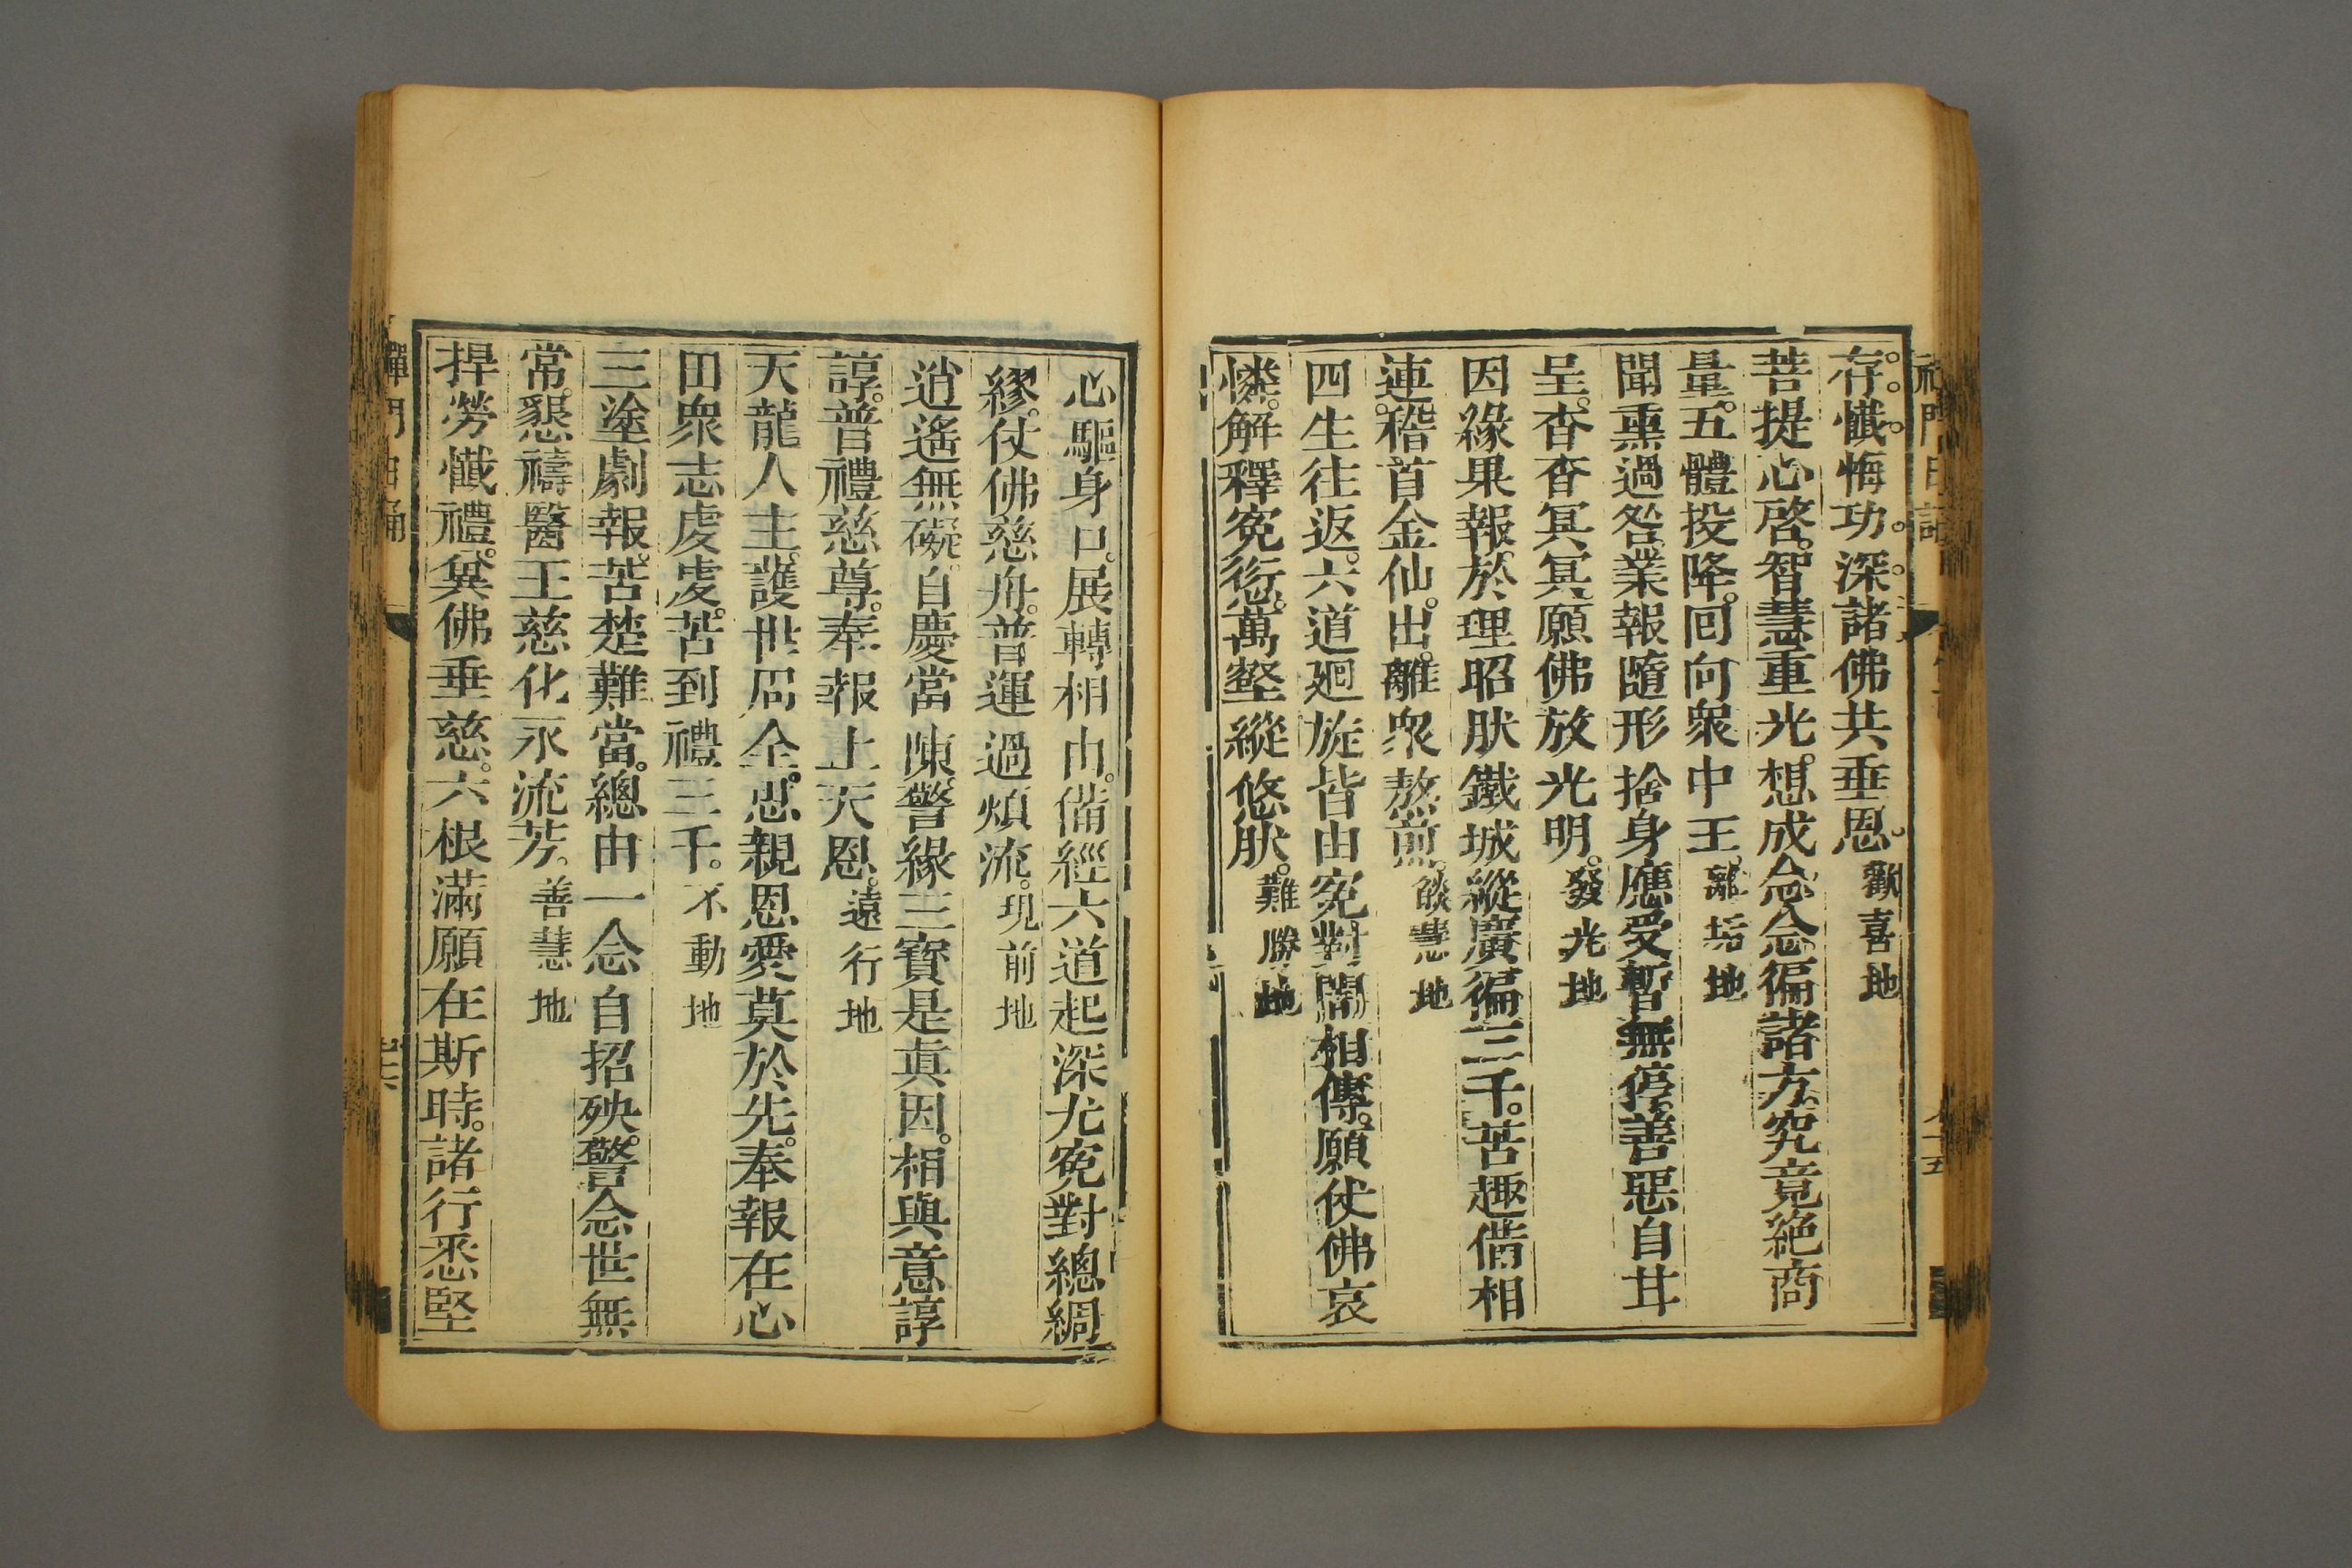 存。懺悔功深。諸佛共垂恩。歡喜地
菩提心啓。智慧重光。想成念念徧諸方。究竟絶商
量。五體投降。回向衆中王。離垢地
聞熏過咎。業報隨形。捨身應受暫無停。善惡自甘
呈。杳杳冥冥。願佛放光明。發光地
因緣果報。於理昭肰。鐵城縱廣徧三千。苦趣偹相
連。稽首金仙。出離衆熬煎。燄慧地
四生往返。六道廻旋。皆由寃對闇相傳。願仗佛哀
憐。解釋寃愆。萬壑縱悠肰。難勝地
心驅身口。展轉相由。偹經六道起深尤。寃對總綢
繆。仗佛慈舟。普運過煩流。現前地
逍遙無礙。自慶當陳。警緣三寶是眞因。相與意諄
諄。普禮慈尊。奉報上天恩。遠行地
天龍人主。護世周全。思親恩愛莫於先。奉報在心
田。衆志虔虔。苦到禮三千。不動地
三塗劇報。苦楚難當。總由一念自招殃。警念世無
常。懇禱醫王。慈化永流芳。善慧地
捍勞懺禮。兾佛垂慈。六根滿願在斯時。諸行悉堅
禪門日誦